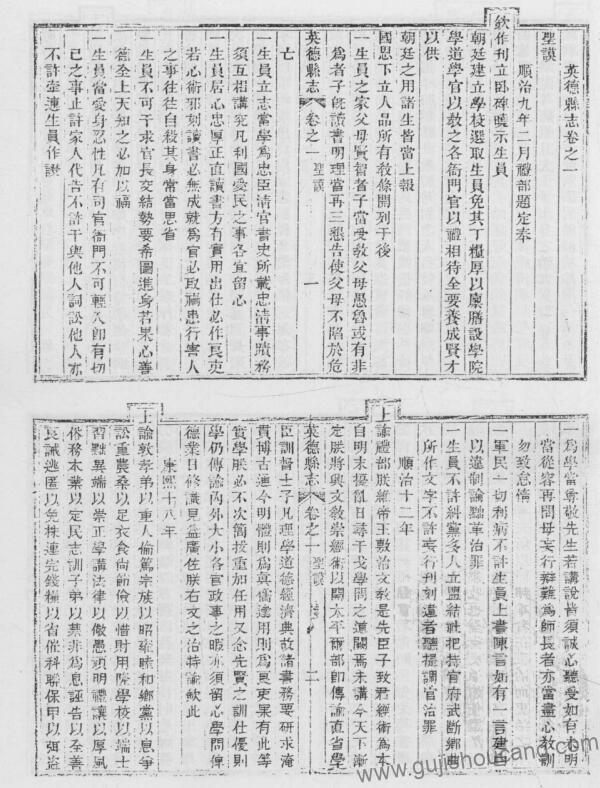 英德縣志卷之一
聖謨
順治九年二月禮部題定奉
欽作刊立臥碑曉示生員
朝廷建立學校選取生員免其丁糧厚以廩膳設學院
學道學官以教之各衙門官以禮相待全要養成賢才
以供
朝廷之用諸生皆當上報
國恩下立人品所有教條開列于後
一生員之家父母賢智者子當受教父母愚魯或有非
為者子旣讀書明理當再三懇告使父母不陷於危
英德縣志 卷之一 聖謨 一
亡
一生員立志當學為忠臣清官書史所載忠清事蹟務
須互相講究凡利國愛民之事各宜留心
一生員居心忠厚正直讀書方有實用出仕必作良吏
若心術邪刻讀書必無成就為官必取禍患行害人
之事往往自殺其身常當思省
一生員不可干求官長交結勢要希圖進身若果心善
德全上天知之必加以福
一生員當愛身忍性凡有司官衙門不可輕入卽有切
己之事止許家人代告不許干與他人詞訟他人亦
不許牽連生員作證
一為學當尊敬先生若講說皆須誠心聽受如有未明
當從容再問毋妄行辯難為師長者亦當盡心教訓
勿致怠惰
一軍民一切利病不許生員上書陳言如有一言建白
以違制論黜革治罪
一生員不許糾黨多人立盟結社把持官府武斷鄉曲
所作文字不許妄行刊刻違者聽提調官治罪
順治十二年
上諭禮部朕維帝王敷治文教是先臣子致君經術為本
自明末擾亂日尋干戈學問之道闕焉未講今天下漸
定朕將興文教崇經術以開太平爾部卽傳諭直省學
英德縣志 卷之一 聖謨 二
臣訓督士子凡理學道德經濟典故諸書務要研求淹
貫博古通今明體則為真儒達用則為良吏果有此等
實學朕必不次簡拔重加任用又念先賢之訓仕優則
學仍傳諭內外大小各官政事之暇亦須留心學問俾
德業日修識見益廣佐朕右文之治特諭欽此
康熙十八年
上諭敦孝弟以重人倫篤宗族以昭雍睦和鄉黨以息爭
訟重農桑以足衣食尚節儉以惜財用隆學校以端士
習黜異端以崇正學講法律以儆愚頑明禮讓以厚風
俗務本業以定民志訓子弟以禁非為息誣告以全善
良誡逃匿以免株連完錢糧以省催科聯保甲以弭盜
www.gujishousang.com